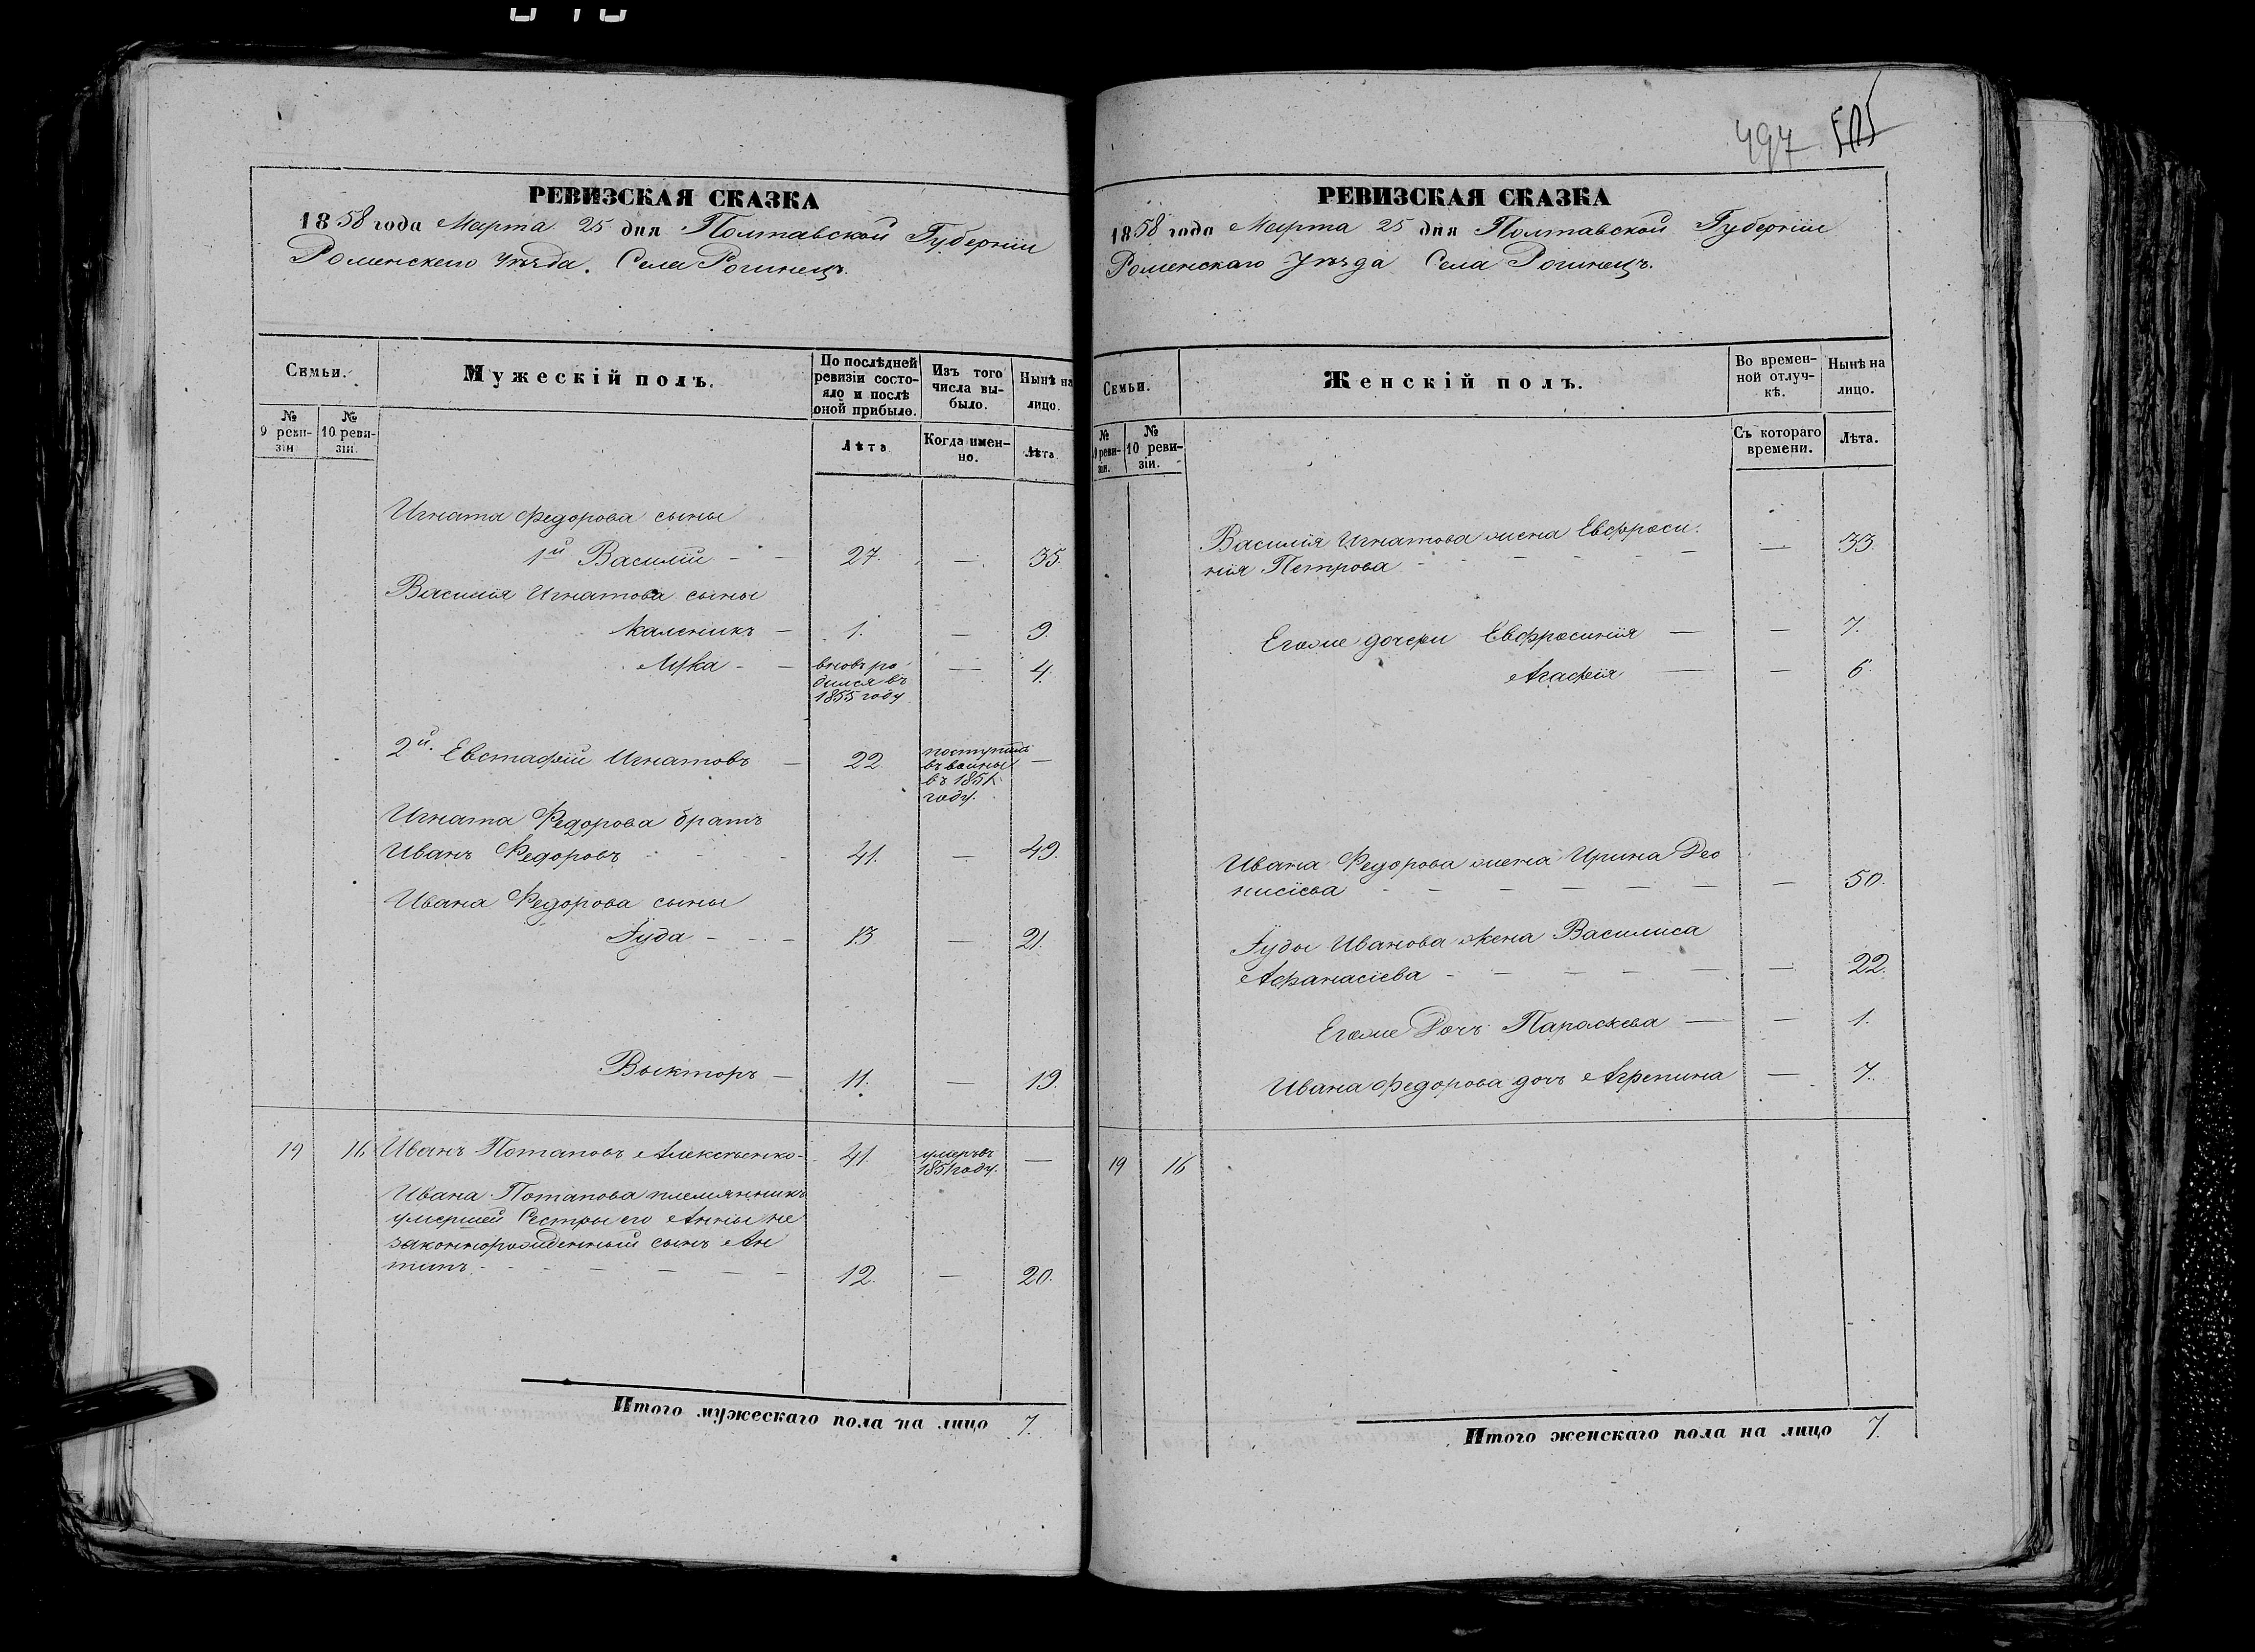 497
РЕВИЗСКАЯ СКАЗКА
1858 года Марта 25 дня Полтавской Губерніи
Роменскаго Уѣзда. Села Рогинецъ.
Семьи.
Мужескій полъ.
По послѣдней ревизіи состо-
яло и послѣ оной прибыло.
Изъ того числа вы-
было.
Нынѣ на лицо.
№ 9 реви-
зіи
№ 10 реви-
зіи.
Лѣта
Когда имен-
но.
Лѣта
Игната Федорова сыны
1й Василій - - 27. — 35.
Василія Игнатова сыны
Каленикъ — 1. — 9.
Лука - — вновь ро — 4.
дился въ
1855 году
2й. Евстафій Игнатовъ — 22. поступилъ —
въ воины
въ 1851
году.
Игната Федорова братъ
Иванъ Федоровъ - - - 41. — 49.
Ивана Федорова сыны
Іуда - - - 13 — 21.
Выкторъ — 11. — 19.
19 16 Иванъ Потаповъ Алексѣенко - 41. умеръ въ —
1851 году.
Ивана Потапова племянникъ
умершей Сестры его Анны не
законнорожденный сынъ Ан
типъ - - - — — — 12. — 20.
Итого мужескаго пола на лицо 7.
РЕВИЗСКАЯ СКАЗКА
1858 года Марта 25 дня Полтавской Губерніи
Роменскаго Уѣзда Села Рогинецъ.
Семьи.
Женскій полъ.
Во времен-
ной отлуч-
кѣ.
Нынѣ на лицо.
№ 9 реви-
зіи.
№ 10 реви-
зіи.
Съ котораго
времени.
Лѣта.
Василія Игнатова жена Евфроси-
нія Петрова - - - - - — 33.
Егоже дочери Евфросинія — — 7.
Агафія — — 6.
Ивана Федорова жена Ирина Део
нисіева - — — — — — — 50.
Іуды Иванова жена Василиса
Афанасіева - — — — — — — 22.
Егоже Дочь Параскева — — 1.
Ивана Федорова дочь Агрепина — 7.
19 16
Итого женскаго пола на лицо 7.